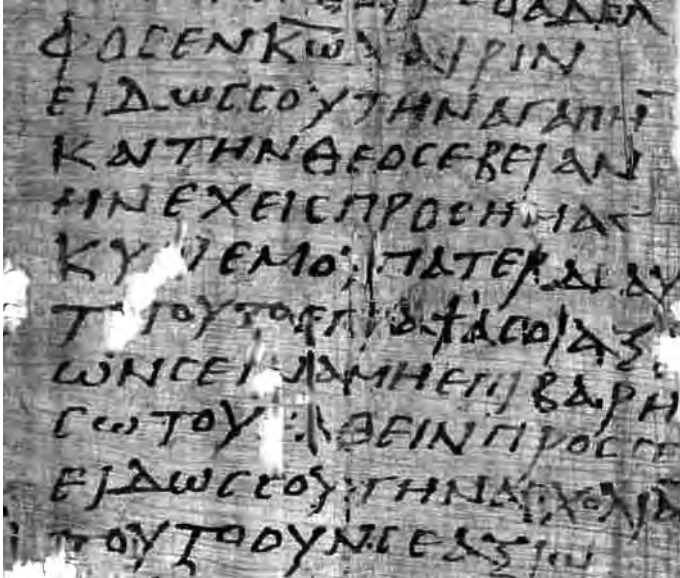 ΟΑΔΕΛ
ΦΟCΕΝΚ̅Ω̅ΧΑΙΡΙΝ
ΕΙΔΩCCΟΥΤΗΝΑΓΑΠΗ̅
ΚΑΙΤΗΝΘΕΟCΕΒΕΙΑΝ
ΗΝΕΧΕΙCΠΡΟCΗΜΑC
ΚΥΡΙΕΜΟΥΠΑΤΕΡΔΙΑΥ
ΤΟΤΟΥΤΟΕΓΡΑΨΑCΟΙΑΞΙ
ΩΝCΕΙΝΑΜΗΕΠΙΒΑΡΗ
CΩΤΟΥΕΛΘΕΙΝΠΡΟCCΕ
ΕΙΔΩCCΟΥΤΗΝΑCΧΟΛΙΑ
ΤΟΥΤΟΟΥΝCΕΑΞΙΩ